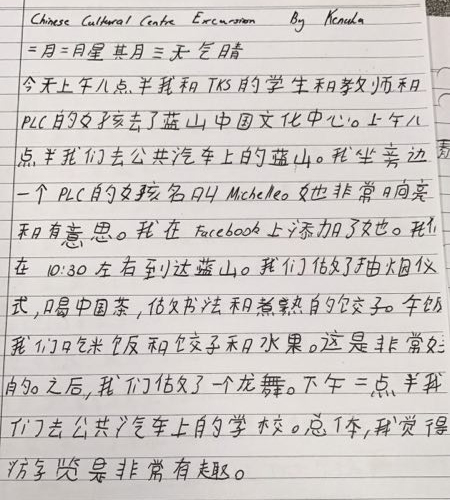 Chinese Cultural Centre Excursion By Kenuka
二月二月星其月三天气晴
今天上午八点半我和TKS的学生和教师和
PLC的女孩去了蓝山中国文化中心。上午八
点半我们去公共汽车上的蓝山。我坐旁边
一个PLC的女孩名叫Michelle。她非常响亮
和有意思。我在Facebook上添加了她。我们
在10:30左右到达蓝山。我们做了抽烟仪
式,喝中国茶,做书法和煮熟的饺子。午饭
我们吃米饭和饺子和水果。这是非常好
的。之后,我们做了一个龙舞。下午二点半我
们去公共汽车上的学校。总体,我觉得
游览是非常有趣。